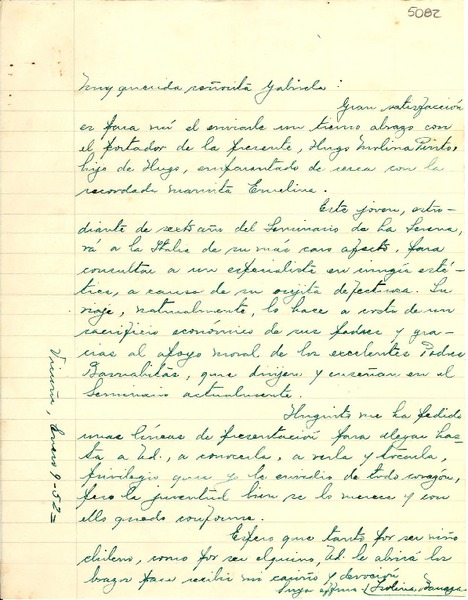 5082
Muy querida señorita Gabriela:
Gran satisfacción
es para mí el enviarle un tierno abrazo con
el portador de la presente, Hugo Molina Pinto,
hijo de Hugo, emparentado de cerca con la
recordada mamita Emelina.
Este joven, estu-
diante de sexto año del Seminario de La Serena,
vá a la Italia de su más caro afecto, para
consultar a un especialista en cirugía esté-
tica, a causa de su orejita defectuosa. Su
viaje, naturalmente, lo hace a costa de un
sacrificio económico de sus padres y gra-
cias al apoyo moral de los excelentes Padres
Barnabitas, que dirijen y enseñan en el
Seminario actualmente.
Huguito me ha pedido
unas líneas de presentación para llegar has-
ta a Ud., a conocerla, a verla y tocarla,
privilegio que yo le envidio de todo corazón,
pero la juventud bien se lo merece y con
ello quedo conforme.
Espero que tanto por ser niño
chileno, como por ser elquino, Ud. le abrirá los
brazos para recibir mi cariño y devoción
Isolina Barraza
Vicuña, Enero 9-52=